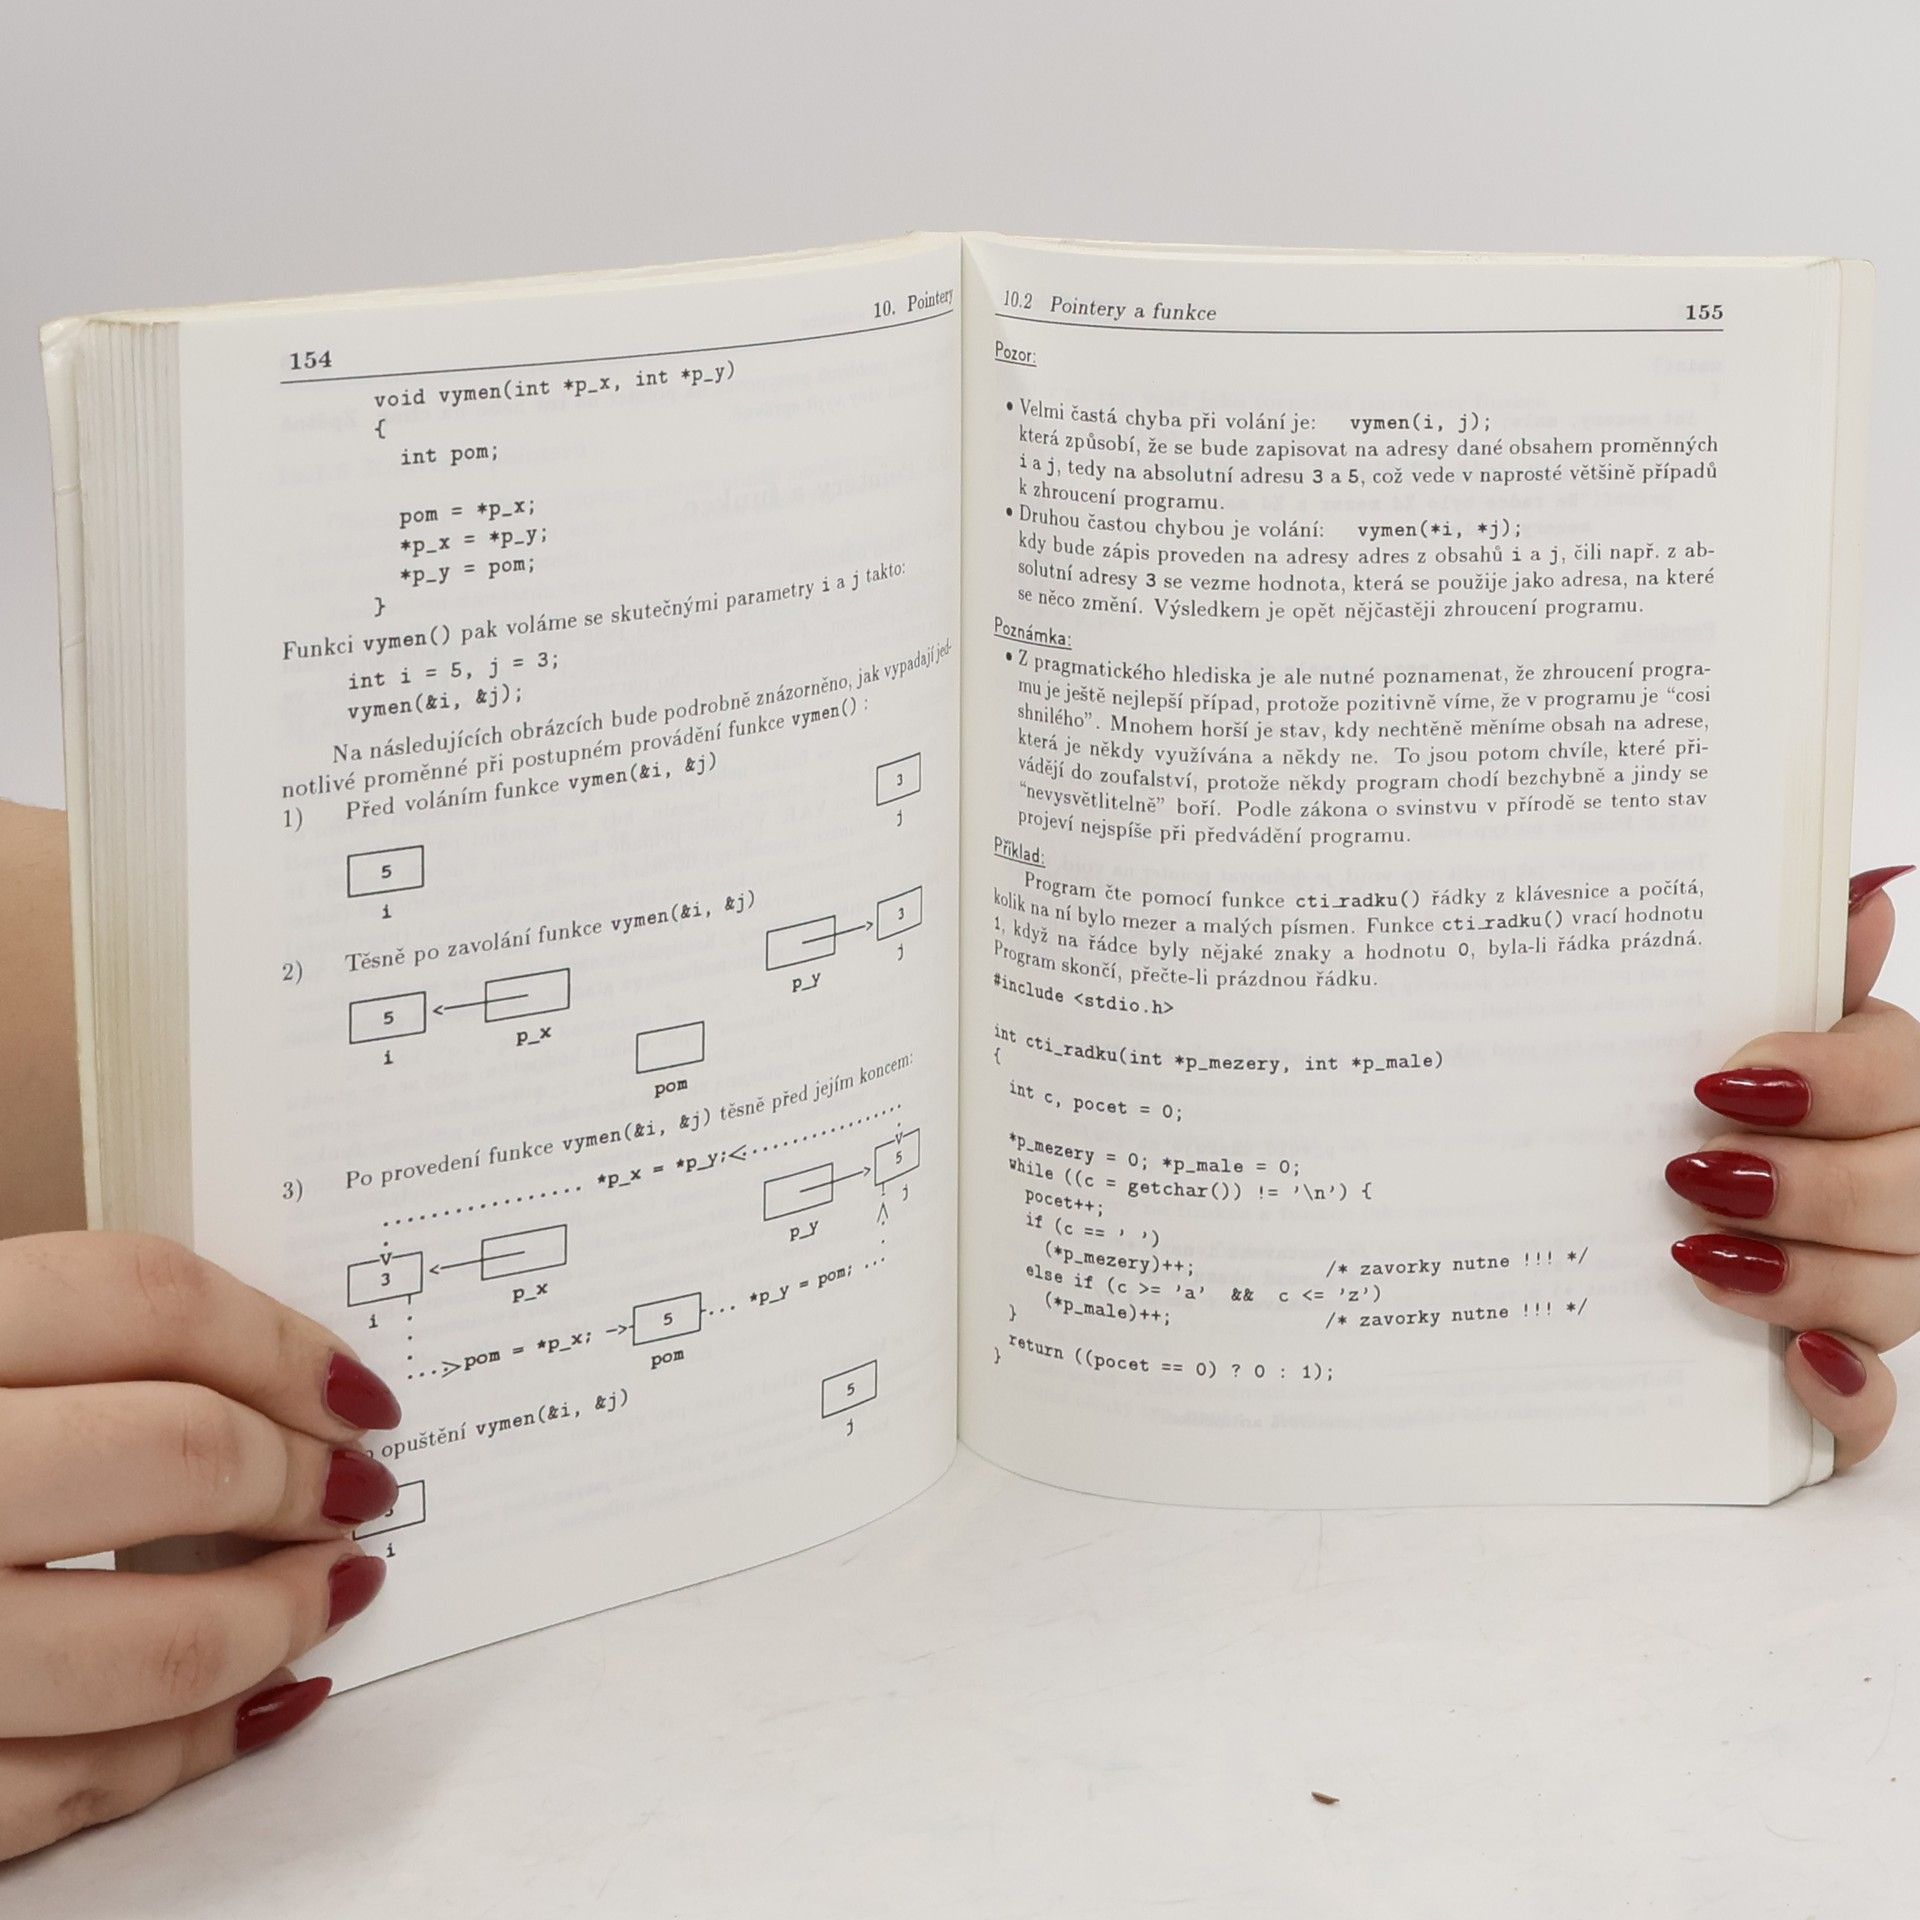 154
10. Pointery
void vymen(int *p_x, int *p_y)
{
int pom;
pom = *p_x;
*p_x = *p_y;
*p_y = pom;
}
Funkci vymen() pak voláme se skutečnými parametry i a j takto:
int i = 5, j = 3;
vymen(&i, &j);
Na následujících obrázcích bude podrobně znázorněno, jak vypadají jed-
notlivé proměnné při postupném provádění funkce vymen() :
1) Před voláním funkce vymen(&i, &j)
5
i
3
j
2) Těsně po zavolání funkce vymen(&i, &j)
5
i
p_x
p_y
3
j
pom
3) Po provedení funkce vymen(&i, &j) těsně před jejím koncem:
*p_x = *p_y;<
3
i
p_x
p_y
5
j
...>pom = *p_x; -> 5 ... *p_y = pom; ...
pom
opuštění vymen(&i, &j)
i
5
j
10.2 Pointery a funkce
155
Pozor:
• Velmi častá chyba při volání je: vymen(i, j);
která způsobí, že se bude zapisovat na adresy dané obsahem proměnných
i a j, tedy na absolutní adresu 3 a 5, což vede v naprosté většině případů
k zhroucení programu.
• Druhou častou chybou je volání: vymen(*i, *j);
kdy bude zápis proveden na adresy adres z obsahů i a j, čili např. z ab-
solutní adresy 3 se vezme hodnota, která se použije jako adresa, na které
se něco změní. Výsledkem je opět nějčastěji zhroucení programu.
Poznámka:
• Z pragmatického hlediska je ale nutné poznamenat, že zhroucení progra-
mu je ještě nejlepší případ, protože pozitivně víme, že v programu je “cosi
shnilého”. Mnohem horší je stav, kdy nechtěně měníme obsah na adrese,
která je někdy využívána a někdy ne. To jsou potom chvíle, které při-
vádějí do zoufalství, protože někdy program chodí bezchybně a jindy se
“nevysvětlitelně” boří. Podle zákona o svinstvu v přírodě se tento stav
projeví nejspíše při předvádění programu.
Příklad:
Program čte pomocí funkce cti_radku() řádky z klávesnice a počítá,
kolik na ní bylo mezer a malých písmen. Funkce cti_radku() vrací hodnotu
1, když na řádce byly nějaké znaky a hodnotu 0, byla-li řádka prázdná.
Program skončí, přečte-li prázdnou řádku.
#include <stdio.h>
int cti_radku(int *p_mezery, int *p_male)
{
int c, pocet = 0;
*p_mezery = 0; *p_male = 0;
while ((c = getchar()) != '\n') {
pocet++;
if (c == ' ')
(*p_mezery)++; /* zavorky nutne !!! */
else if (c >= 'a' && c <= 'z')
(*p_male)++; /* zavorky nutne !!! */
}
return ((pocet == 0) ? 0 : 1);
}